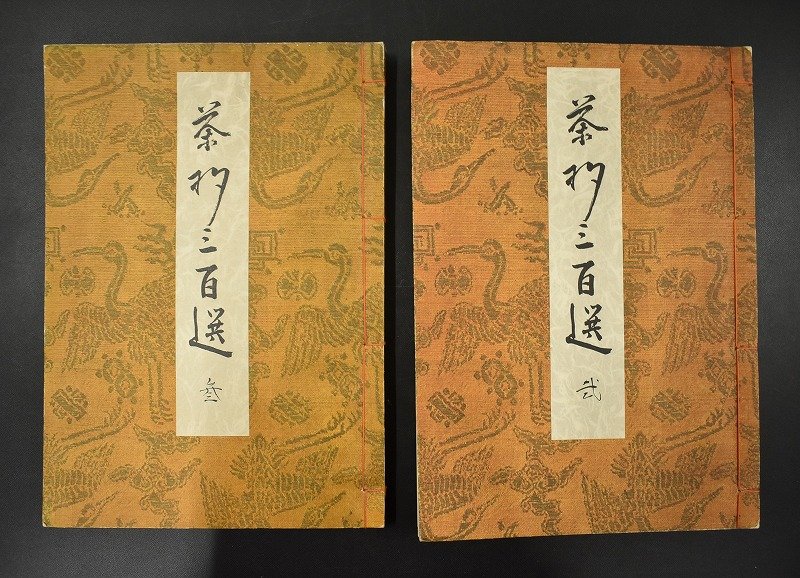 茶杓三百選
弐
茶杓三百選
叁